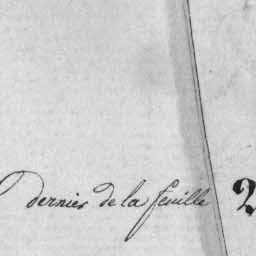 dernier de la feuille 2